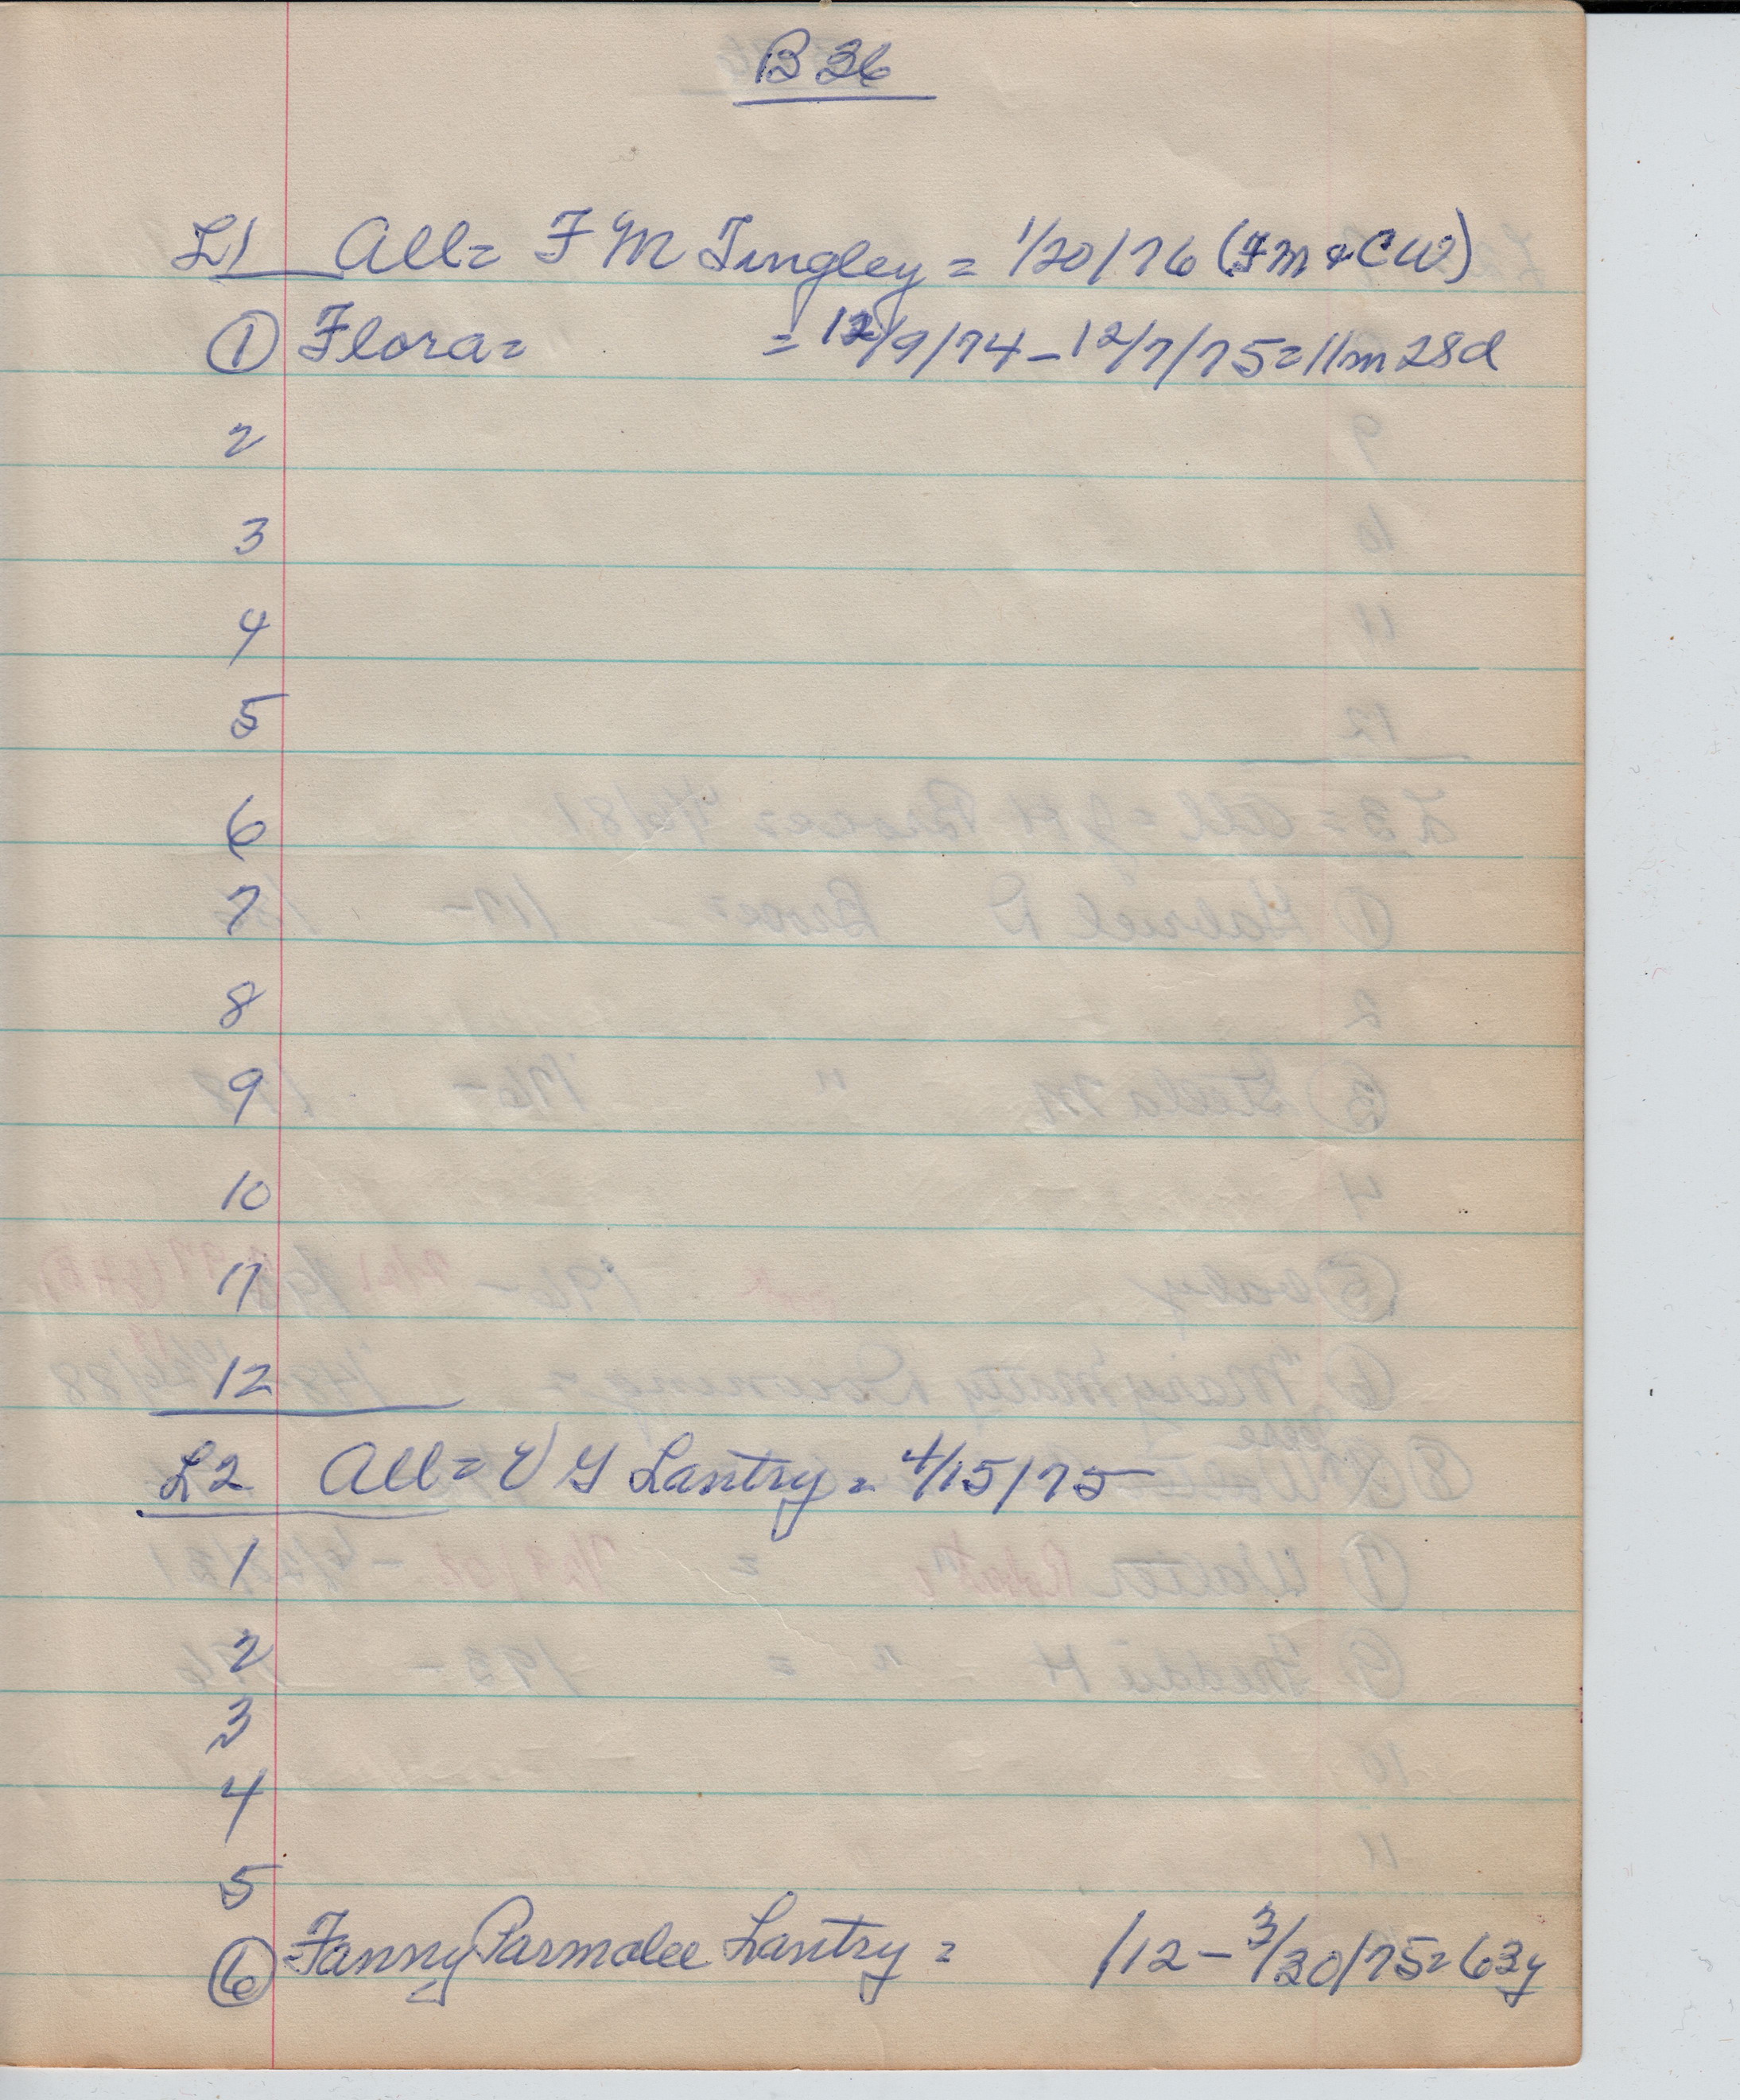 B 36
L1 All = F M Tingley = 1/20/76 (FM & CW)
① Flora = = 12/9/74 - 12/7/75 = 11m 28d
2
3
4
5
6
7
8
9
10
11
12
L2 All = V G Lantry = 4/15/75
1
2
3
4
5
⑥ Fanny Parmalee Lantry = /12 - 3/30/75 = 63y